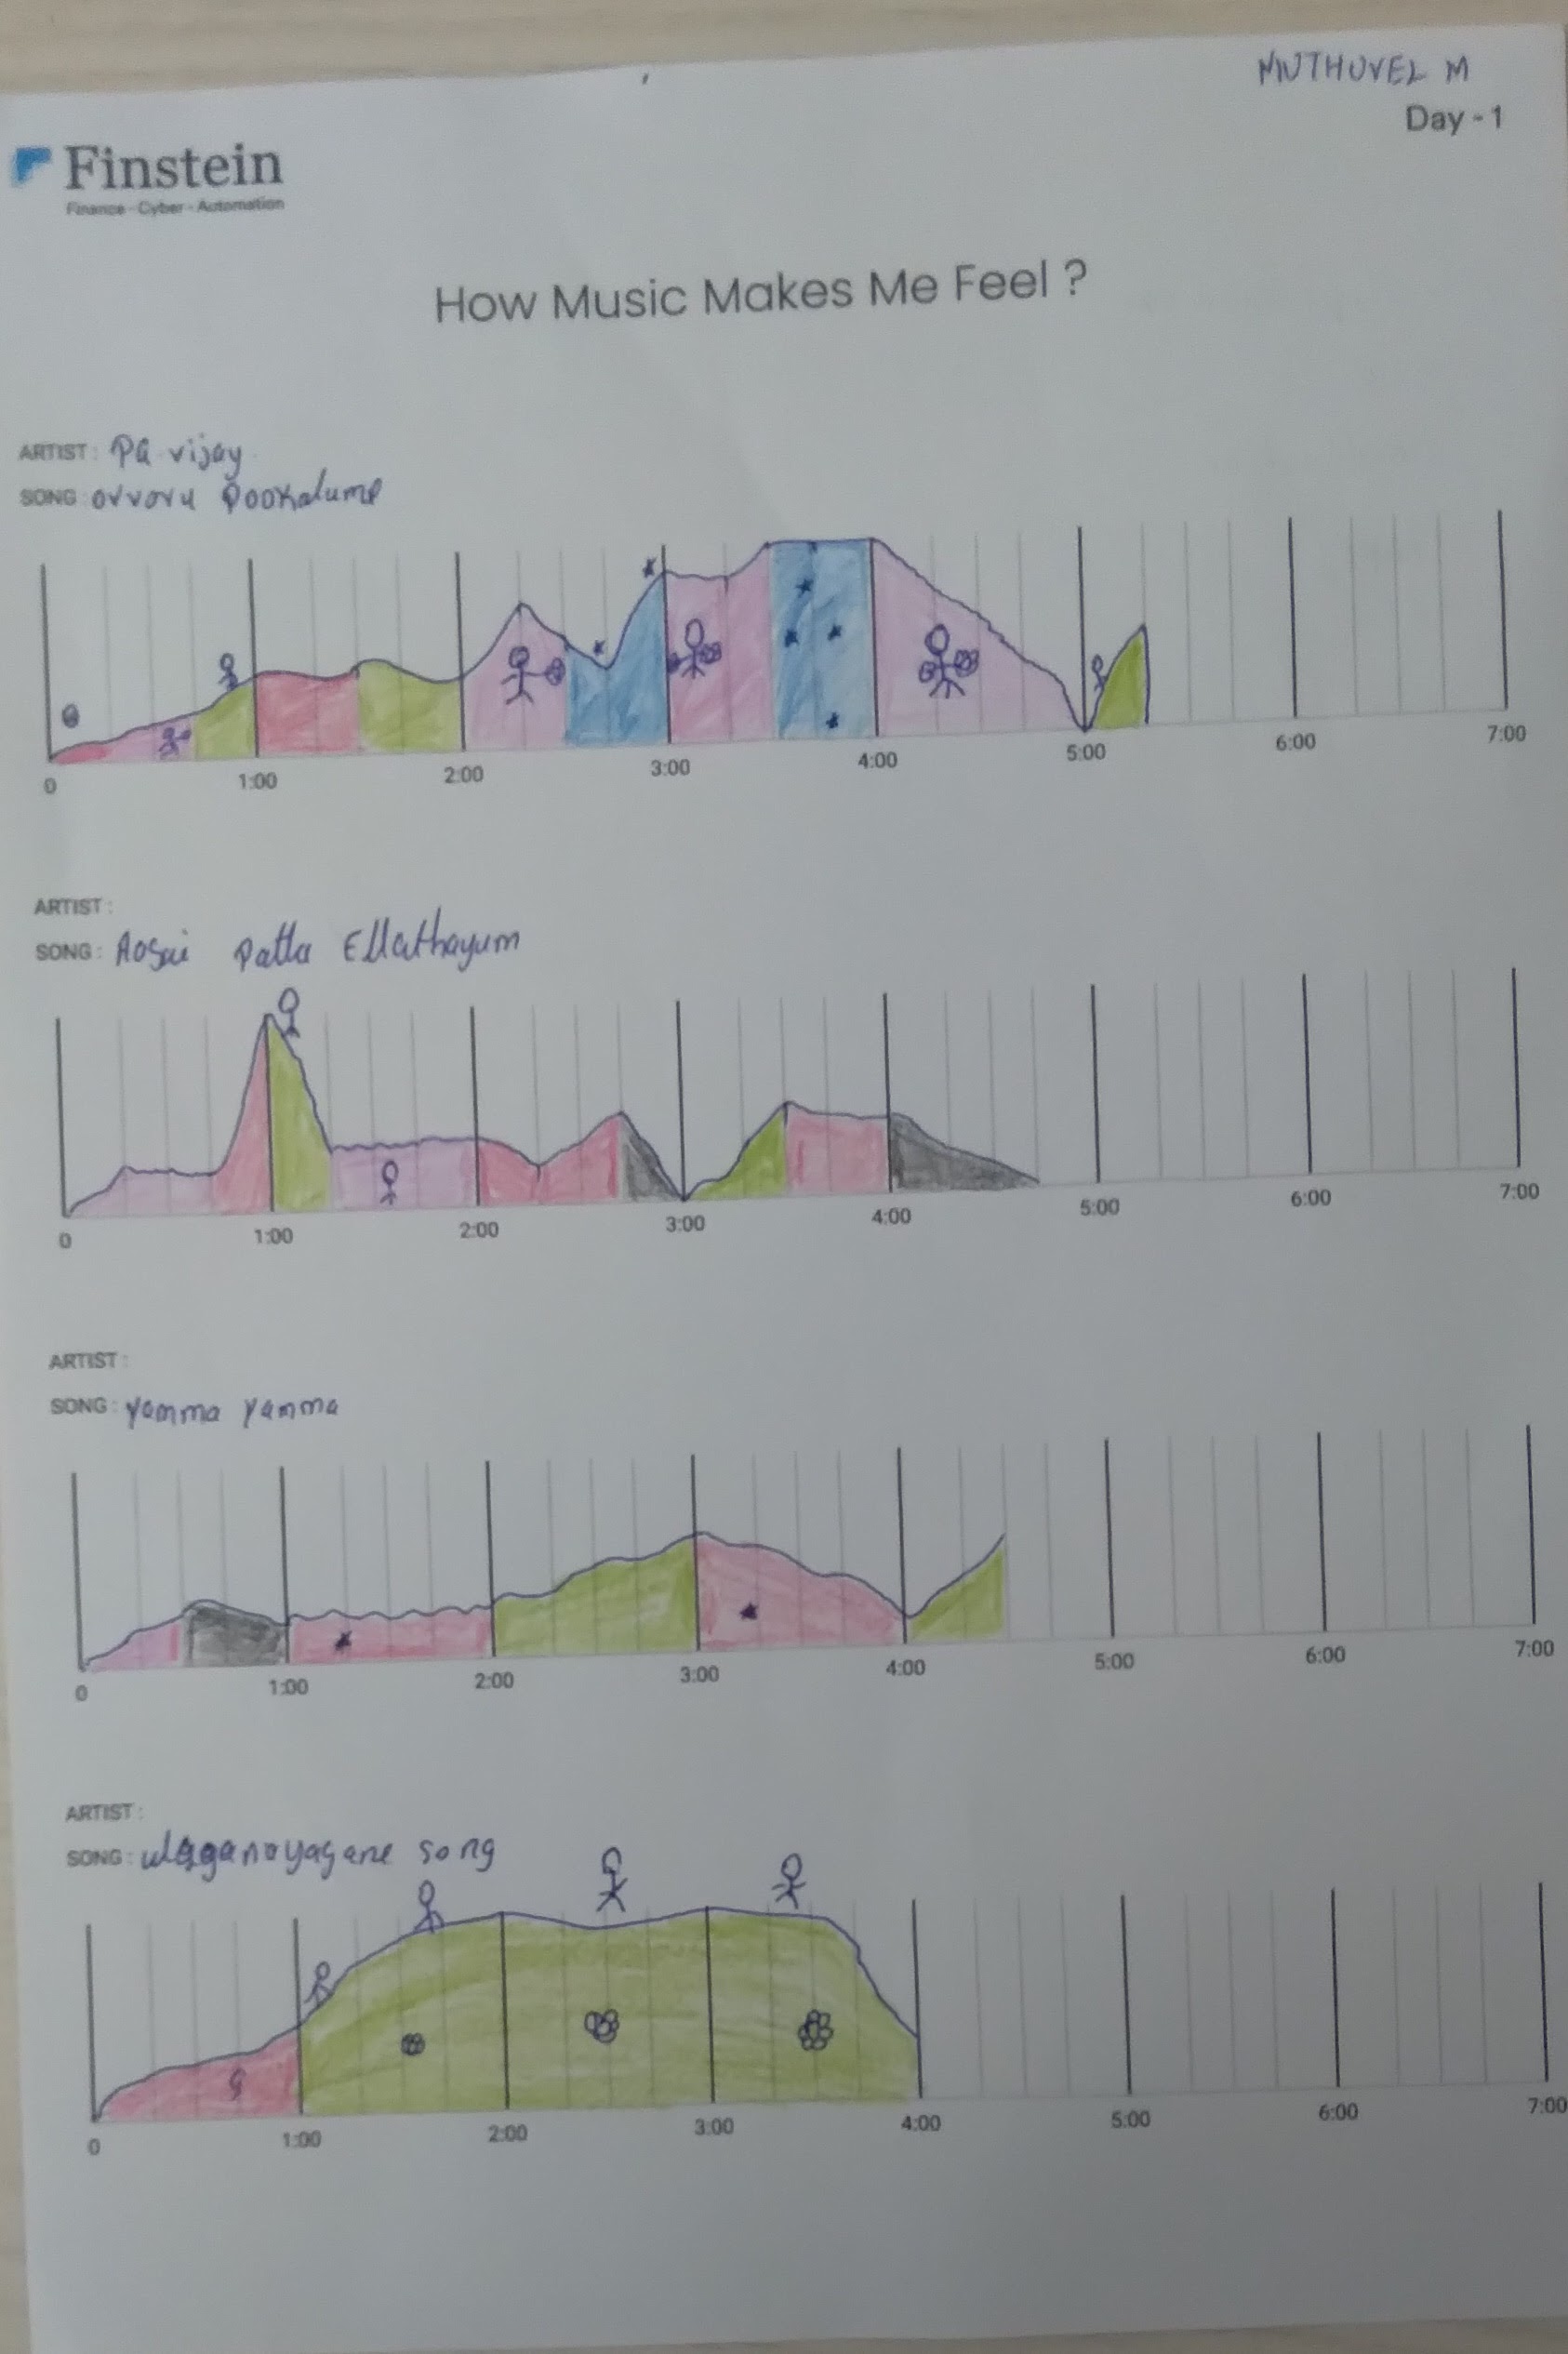 MUTHUVEL M
Day - 1
Finstein
Finance - Cyber - Automation
How Music Makes Me Feel ?
ARTIST : Pa vijay
SONG : ovvoru Pookalume
0 1:00 2:00 3:00 4:00 5:00 6:00 7:00
ARTIST :
SONG : Aasai Patta Ellathayum
0 1:00 2:00 3:00 4:00 5:00 6:00 7:00
ARTIST :
SONG : Yamma Yamma
0 1:00 2:00 3:00 4:00 5:00 6:00 7:00
ARTIST :
SONG : ulaganayagane song
0 1:00 2:00 3:00 4:00 5:00 6:00 7:00